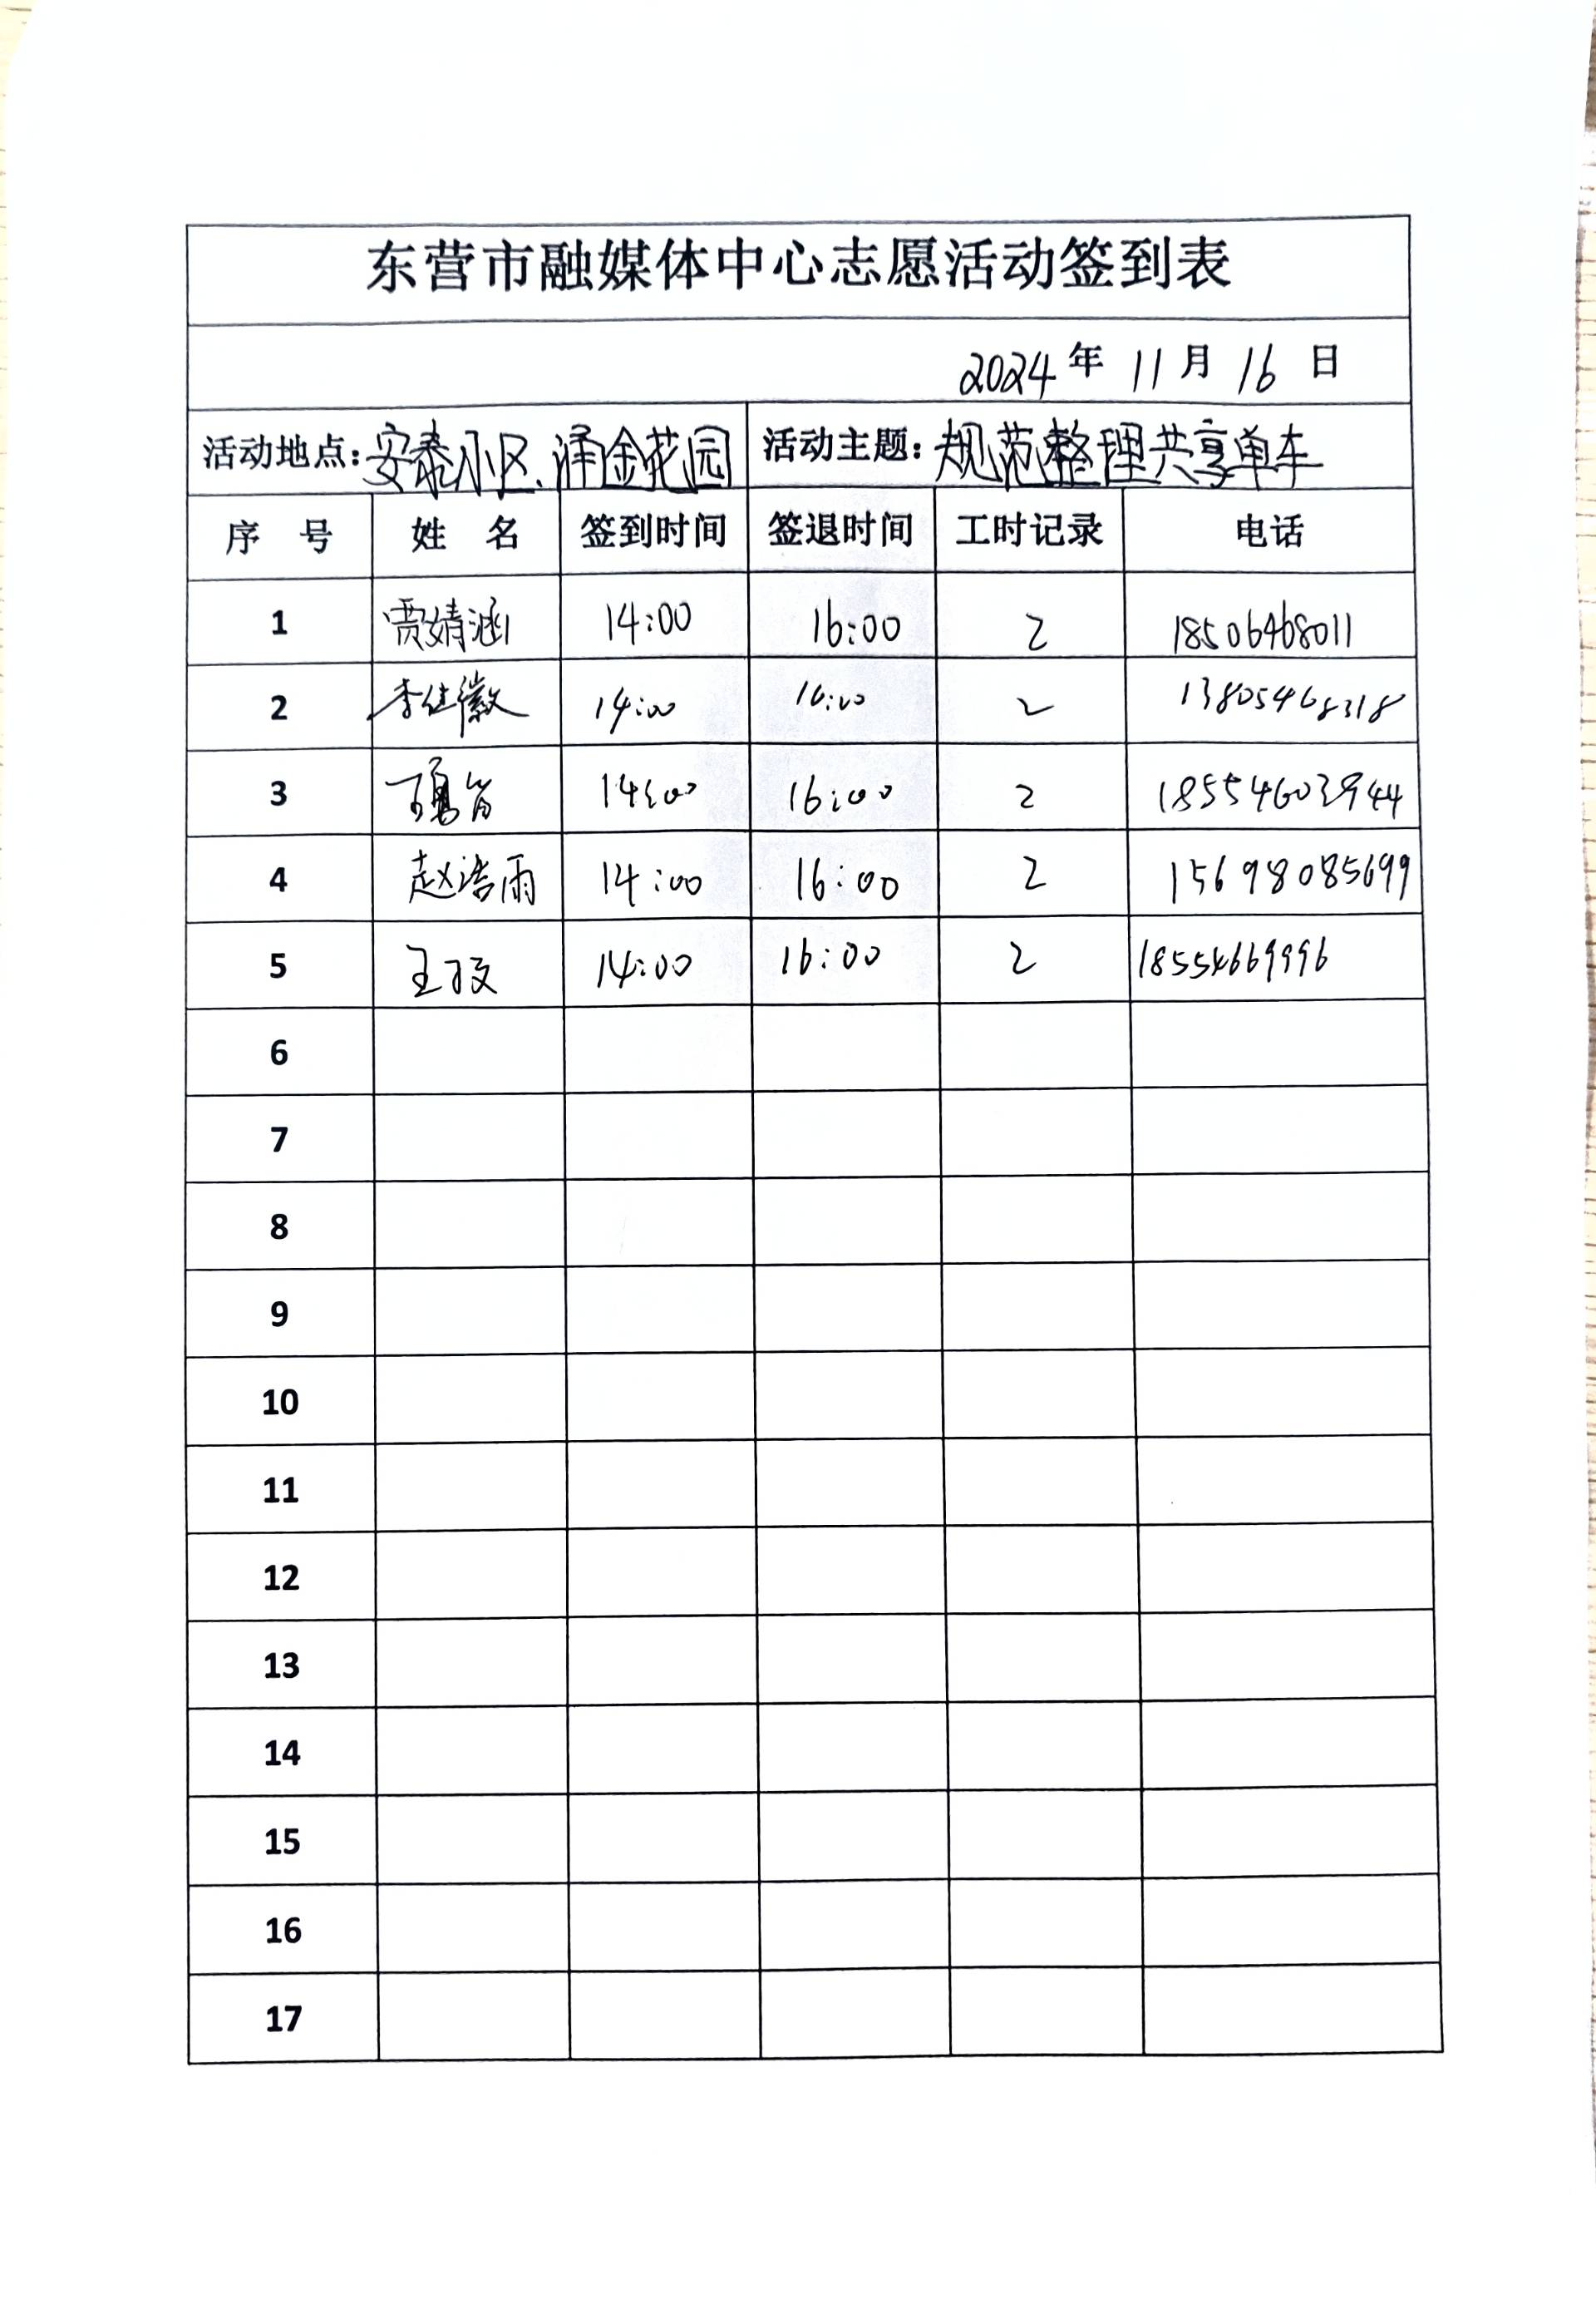 东营市融媒体中心志愿活动签到表
2024年 11月 16日
活动地点:安泰小区、涌金花园 活动主题:规范整理共享单车
序 号 姓 名 签到时间 签退时间 工时记录 电话
1 贾婧涵 14:00 16:00 2 18506468011
2 李仕徽 14:00 16:00 2 13805468318
3 14:00 16:00 2 18554603944
4 赵浩雨 14:00 16:00 2 15698085699
5 王 14:00 16:00 2 18554669996
6
7
8
9
10
11
12
13
14
15
16
17